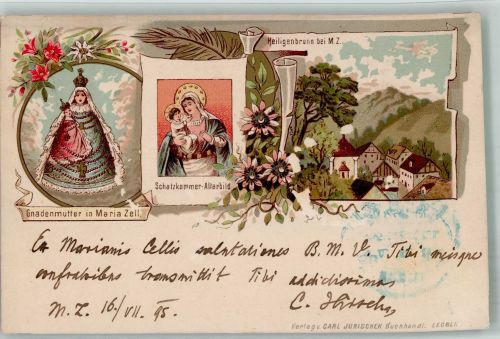 Heiligenbrunn bei M.Z.
Schatzkammer-Altarbild
Gnadenmutter in Maria Zell.
Ex Marianis Cellis salutationes B. M. V. Tibi meisque
confratribus transmittit Tibi addictissimus
M. Z. 16/VII. 95. C. Hirsch
Verlag v. CARL JURISCHEK Buchhandl. LEOBEN.